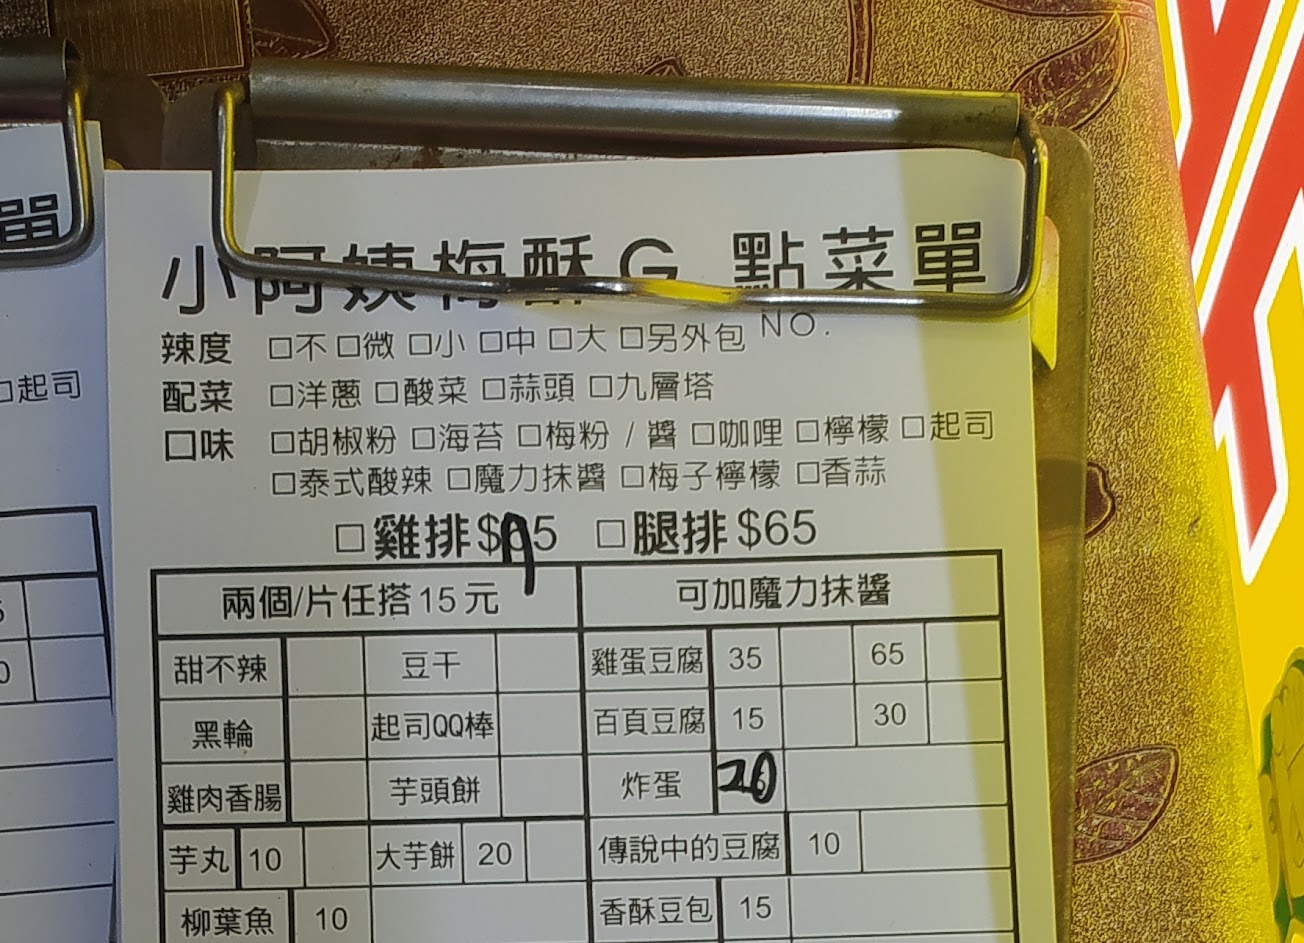 小阿姨梅酥G 點菜單
NO.
辣度 □不 □微 □小 □中 □大 □另外包
配菜 □洋蔥 □酸菜 □蒜頭 □九層塔
口味 □胡椒粉 □海苔 □梅粉 / 醬 □咖哩 □檸檬 □起司
□泰式酸辣 □魔力抹醬 □梅子檸檬 □香蒜
□雞排 $75 □腿排 $65
兩個/片任搭15元 可加魔力抹醬
甜不辣 豆干 雞蛋豆腐 35 65
黑輪 起司QQ棒 百頁豆腐 15 30
雞肉香腸 芋頭餅 炸蛋 20
芋丸 10 大芋餅 20 傳說中的豆腐 10
柳葉魚 10 香酥豆包 15
單
□起司